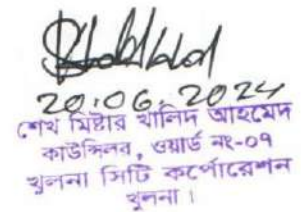 20.06.2024
শেখ মিষ্টার খালিদ আহমেদ
কাউন্সিলর, ওয়ার্ড নং-০৭
খুলনা সিটি কর্পোরেশন
খুলনা।